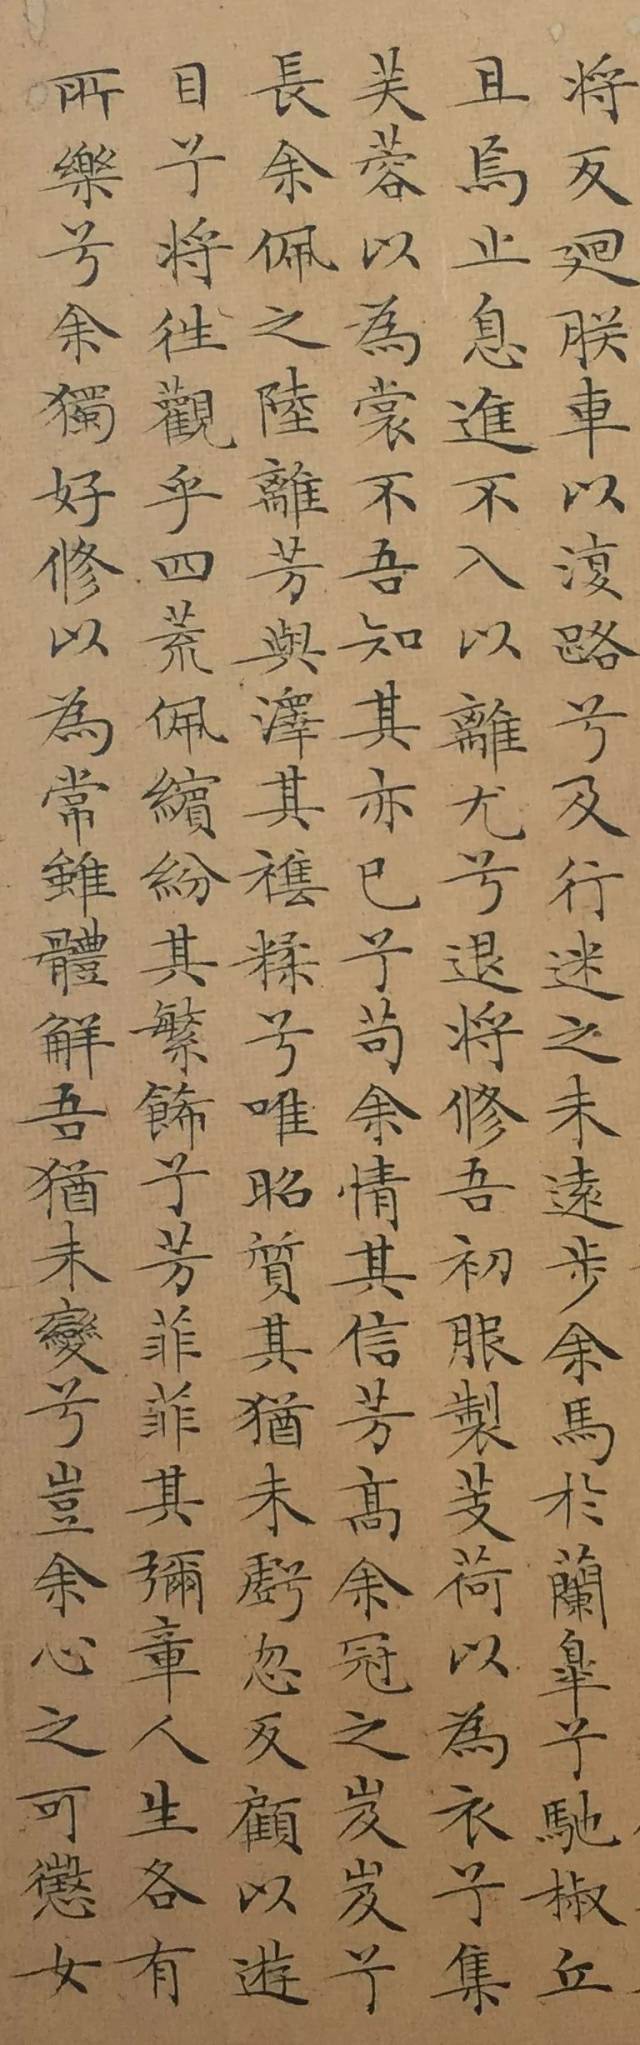 将反廻朕車以復路兮及行迷之未遠步余馬於蘭皋兮馳椒丘
且焉止息進不入以離尤兮退将修吾初服製芰荷以為衣兮集
芙蓉以為裳不吾知其亦已兮苟余情其信芳高余冠之岌岌兮
長余佩之陸離芳與澤其襍糅兮唯昭質其猶未虧忽反顧以遊
目兮将往觀乎四荒佩繽紛其繁飾兮芳菲菲其彌章人生各有
所樂兮余獨好修以為常雖體解吾猶未變兮豈余心之可懲女